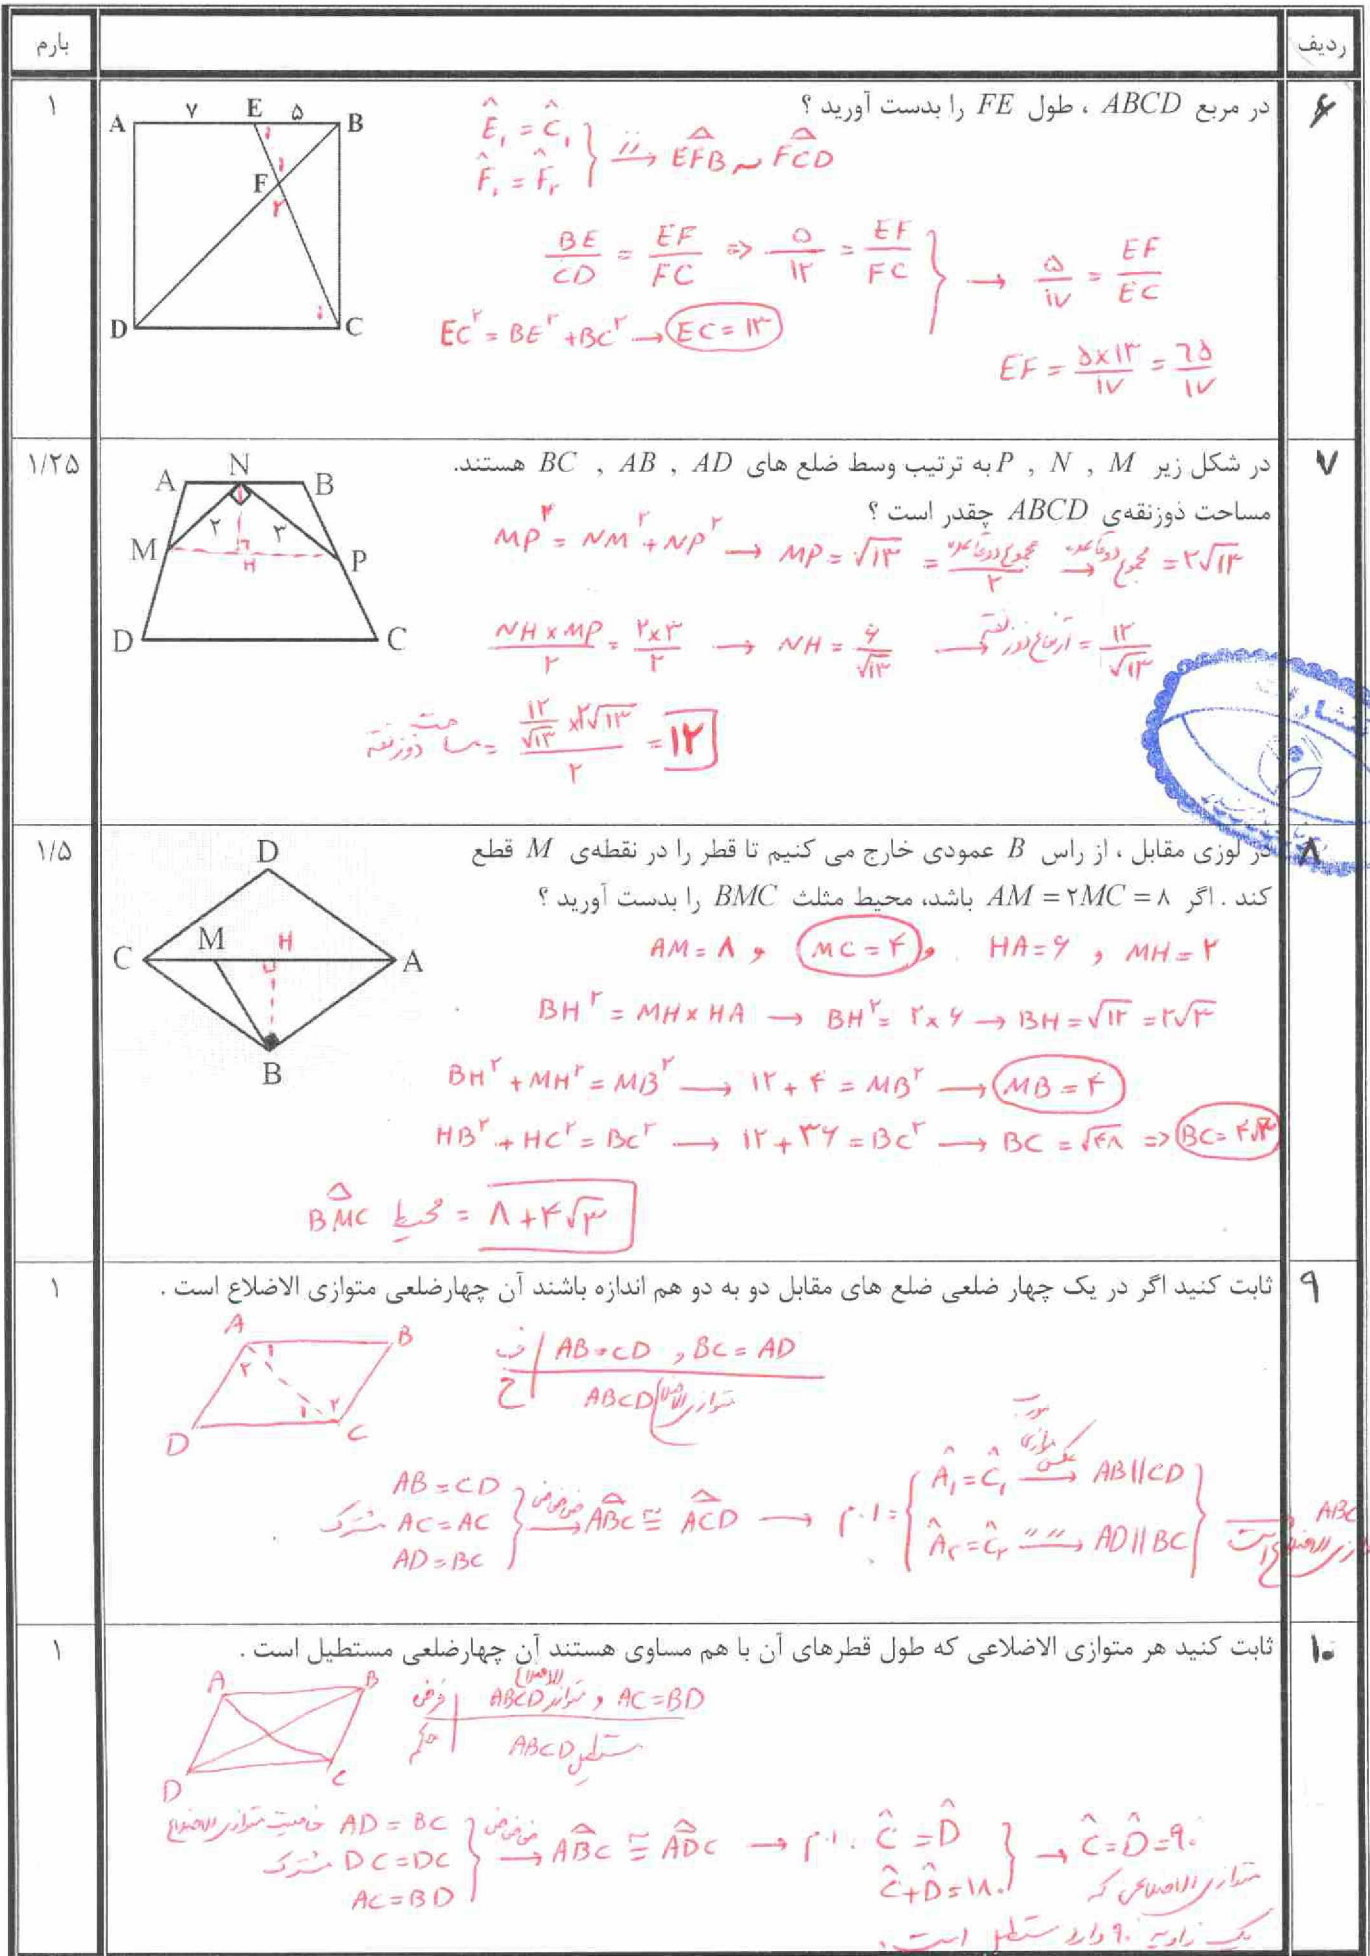 ردیف
بارم
۶
۱
در مربع ABCD ، طول FE را بدست آورید ؟
A ۷ E ۵ B
F
D C
۱ ۱ ۲ ۱
Ê₁ = Ĉ₁
F̂₁ = F̂₂ } زز ⇒ EFB ~ FCD
BE/CD = EF/FC => ۵/۱۲ = EF/FC } → ۵/۱۷ = EF/EC
EC² = BE² + BC² → EC = ۱۳
EF = ۵×۱۳/۱۷ = ۶۵/۱۷
۷
۱/۲۵
در شکل زیر P , N , M به ترتیب وسط ضلع های BC , AB , AD هستند.
مساحت ذوزنقه‌ی ABCD چقدر است ؟
A N B
۲ ۳
M H P
D C
MP² = NM² + NP² → MP = √۱۳ = مجموع دو قاعده/۲ → مجموع دو قاعده = ۲√۱۳
NH × MP/۲ = ۲×۳/۲ → NH = ۶/√۱۳ → ارتفاع ذوزنقه = ۱۲/√۱۳
مساحت ذوزنقه = ۱۲/√۱۳ × ۲√۱۳/۲ = ۱۲
۸
۱/۵
در لوزی مقابل ، از راس B عمودی خارج می کنیم تا قطر را در نقطه‌ی M قطع
کند . اگر AM = ۲MC = ۸ باشد، محیط مثلث BMC را بدست آورید ؟
D
C M H A
B
AM = ۸ و MC = ۴ و HA = ۶ , MH = ۲
BH² = MH × HA → BH² = ۲×۶ → BH = √۱۲ = ۲√۳
BH² + MH² = MB² → ۱۲ + ۴ = MB² → MB = ۴
HB² + HC² = BC² → ۱۲ + ۳۶ = BC² → BC = √۴۸ => BC = ۴√۳
BMC محیط = ۸ + ۴√۳
۹
۱
ثابت کنید اگر در یک چهار ضلعی ضلع های مقابل دو به دو هم اندازه باشند آن چهارضلعی متوازی الاضلاع است .
A B
D C
۱ ۲ ۱ ۲
ف | AB = CD , BC = AD
ح | ABCD متوازی الاضلاع
AB = CD
AC = AC مشترک
AD = BC
} ض ض ض → ABC ≅ ACD → ا.م = { Â₁ = Ĉ₁ عکس → AB || CD
Â₂ = Ĉ₂ " " → AD || BC } → ABC
۱۰
۱
ثابت کنید هر متوازی الاضلاعی که طول قطرهای آن با هم مساوی هستند آن چهارضلعی مستطیل است .
A B
D C
فرض | ABCD متوازی الاضلاع , AC = BD
حکم | ABCD مستطیل
AD = BC خاصیت متوازی الاضلاع
DC = DC مشترک
AC = BD
} ض ض ض → ABC ≅ ADC → ا.م . Ĉ = D̂
Ĉ + D̂ = ۱۸۰ } → Ĉ = D̂ = ۹۰
متوازی الاضلاعی که
یک زاویه ۹۰ دارد مستطیل است.